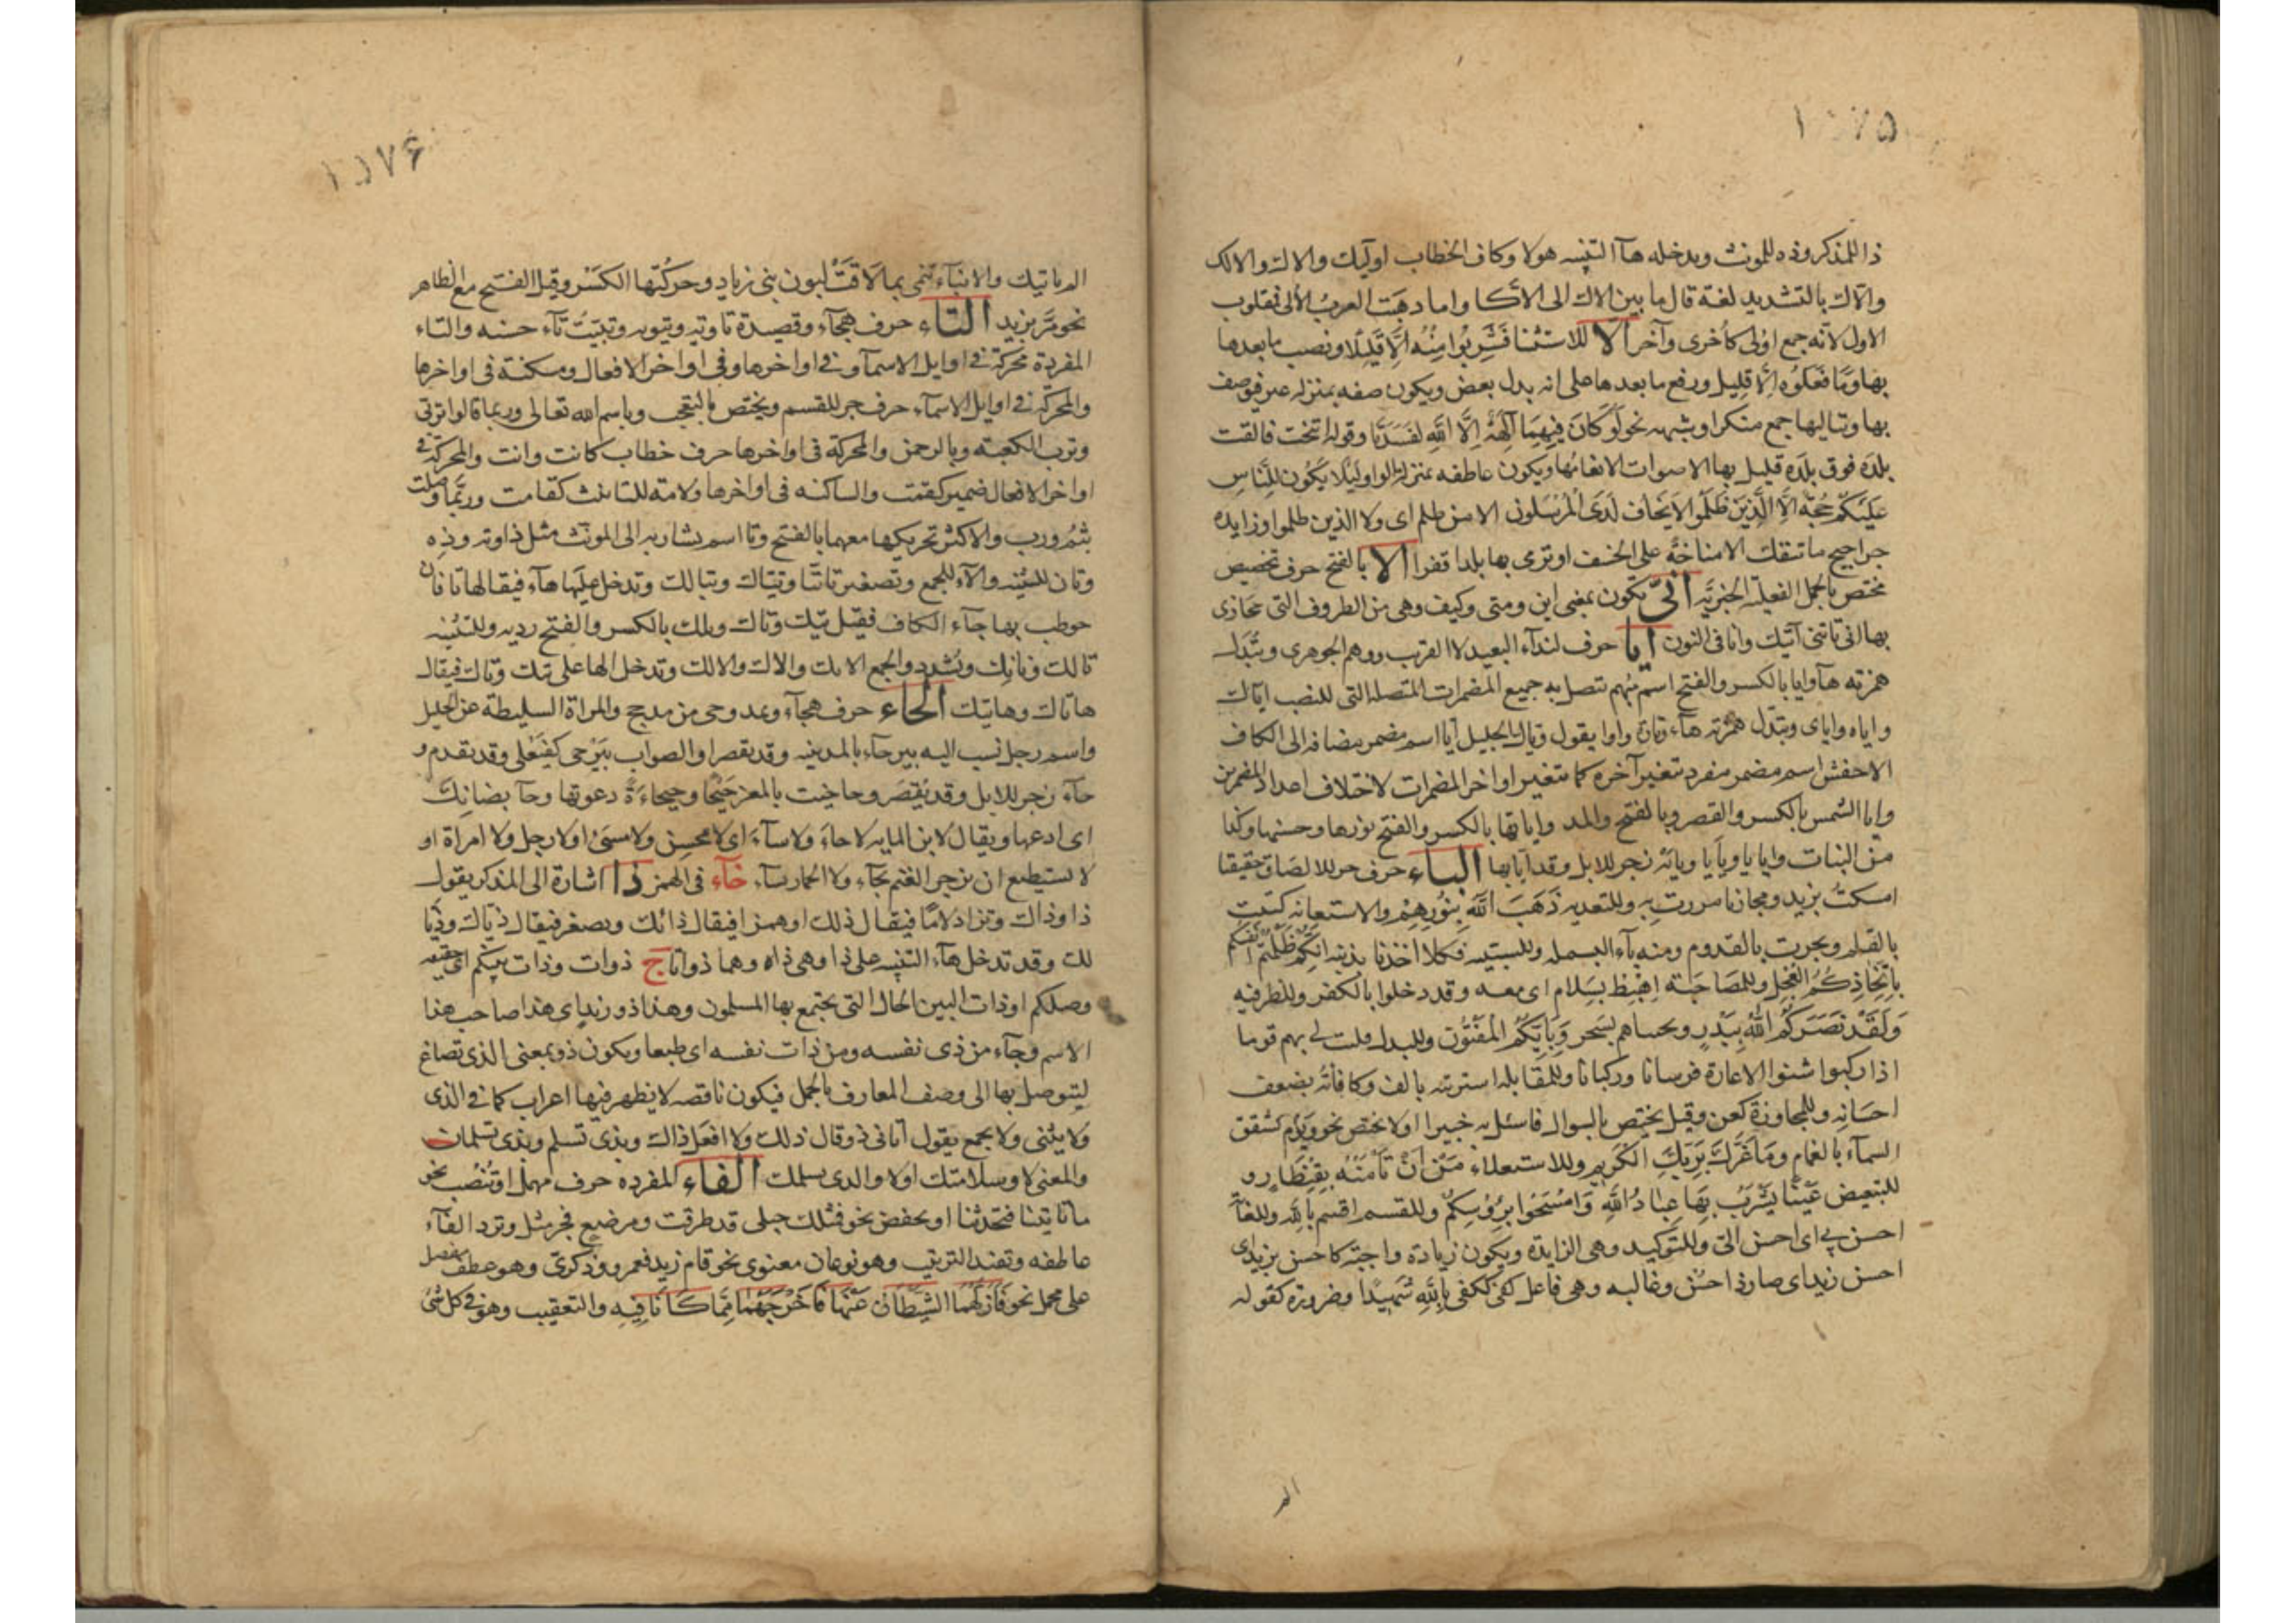 ١٥٧٥
ذا للمذكر وذه للمونث ويدخله هآ التنبيه هولا وكاف الخطاب اوليك والاك والالك
والاك بالتشديد لغة قال ما بين الاك الى الاكا واما دهبت العرب الألى فمقلوب
الاول لانه جمع اولى كاخرى وآخر الا للاستثنا فَشَرِبُوا مِنْهُ اِلَّا قَلِيلًا ونصب ما بعدها
بها وَمَا فَعَلُوْه اِلَّا قليل ورفع ما بعدها على انه بدل بعض ويكون صفه بمنزله عير فيوصف
بها وتاليها جمع منكر او شبهه نحو لَوْ كَانَ فِيهِمَا آلِهَةٌ اِلَّا اللّه لَفَسَدَتَا وقوله انيخت فالقت
بلدة فوق بلدة قليل بها الاصوات الا بغامها ويكون عاطفه بمنزله الواو لِيَلَّا يَكُون لِلنَّاسِ
عَلَيْكُم حُجَّة اِلَّا الَّذِينَ ظَلَمُوا لَا يَخَاف لَدَى الْمُرْسَلُون الا من ظلم اى ولا الذين ظلموا وزايده
حراجيج ما تنفك الا مناخة على الخسف او نرمى بها بلدا قفرا الا بالفتح حرف تحضيض
مختص بالجمل الفعليّه الخبريّه انّى تكون بمعنى اين ومتى وكيف وهى من الظروف التى يجازى
بها انى تاتنى آتيك وانا فى النون ايا حرف لندآء البعيد لا القريب ووهم الجوهرى وتبدل
همزته هآ وايا بالكسر والفتح اسم مبهم تتصل به جميع المضمرات المتصله التى للنصب اياك
واياه واياى وتبدل همزته هآء وتارة واوا يقول وياك الخليل ايا اسم مضمر مضافه الى الكاف
الاخفش اسم مضمر مفرد تتغير آخره كما تتغير اواخر المضمرات لاختلاف اعداد المضمرين
وايا الشمس بالكسر والقصر وبالفتح والمد واياتها بالكسر والفتح نورها وحسنها وكذا
من النبات وايايا ويايا ويايه زجر للابل وقد ايا بها الباء حرف جر للالصاق حقيقا
امسكت بزيد ومجازا مررت به وللتعديه ذَهَبَ اللّه بِنُورِهِمْ والاستعانه كتبت
بالقلم ونجرت بالقدوم ومنه بآء البسمله وللسببيّه فكلا اخذنا بذنبه اِنَّكُم ظَلَمْتُم انفسكم
بِاتِّخَاذِكُمُ العِجْل وللمصَاحبَة اِهْبِط بِسَلام اى معه وقد دخلوا بالكفر وللظرفيه
وَلَقَدْ نَصَرَكُم اللّهُ بِبَدْرٍ ونجيناهم بسَحر وَبِاَيِّكُم الْمَفْتُون وللبدل فليت لى بهم قوما
اذا ركبوا شنوا الاغارة فرسانا وركبانا وللمقابله اشتريته بالف وكافأته بضعف
احسَانِه وللمجاوزة كعن وقيل يختص بالسوال فاسئل به خبيرا اولا يختص نحو ويَوْم تشقق
السمآء بالغمام وَمَا غَرَّكَ بِرَبِّكَ الْكَرِيمِ وللاستعلاء مَنْ اِنْ تَاْمَنْهُ بِقِنْطَارٍ و
للتبعيض عَيْنًا يَشْرَبُ بِهَا عِبَادُ اللّهِ وَامْسَحُوا بِرُؤُسِكُمْ وللقسم اقسم باللّه وللغايَة
احسن بى اى احسن الىّ وللتوكيد وهى الزايدة ويكون زيادة واجبة كاحسن بزيد اى
احسن زيد اى صار ذا احسن وغالبه وهى فاعل كفى ككفى بِاللّهِ شَهِيدًا وضرورة كقوله
الم
١٥٧۶
الم ياتيك والانبآء تنمى بما لاقت لبون بنى زياد وحركتها الكَسْر وقيل الفتح مع الظاهر
نحو مَرَّ بزيد التاء حرف هجآء وقصيدة تاويّه وتيويه وتييت تآء حسنه والتاء
المفردة محركة فى اوايل الاسمآ وفى اواخرها وفى اواخر الافعال ومسكنة فى اواخرها
والمحركة فى اوايل الاسمآء حرف جر للقسم ويختص بالتعجب وباسم اللّه تعالى وربما قالوا تربّى
وترب الكعبه وبالرحمن والمحركة فى اواخرها حرف خطاب كانت وانت والمحركة فى
اواخر الافعال ضمير كقمت والساكنه فى اواخرها علامة للتانيث كقامت وربّما وصلت
بثم ورب والاكثر تحريكها معهما بالفتح وتا اسم يشار به الى المونث مثل ذا وته وذِه
وتان للتثنيه والآء للجمع وتصغير تا تَيَّا وتيّاك وتيالك وتدخل عليها هآء فيقال هاتا فان
خوطب بها جآء الكاف فقيل تيك وتاك وتلك بالكسر والفتح رديه وللتثنيه
تالك وتانك وتشدد والجمع اولئك والاك والالك وتدخل الها على تيك وتاك فيقال
هاتاك وهاتيك الحاء حرف هجآء ويمد وحى من مذحج والمراة السليطة عن الخليل
واسم رجل نسب اليه بيرحآء بالمدينه وقد يقصر او الصواب بَيْرَحى كفَيْعَلى وقد تقدم و
حآء زجر للابل وقد يُقْصَر وحاحيت بالمعز حَيْحًا وحيحاءَةً دعوتها وحآ بضانِك
اى ادعها ويقال لابن المايه لا حاءَ ولا سآء اى لا محسِن ولا مسىءْ او لا رجل ولا امراة او
لا يستطيع ان يزجر الغنم بحآء ولا الحمار بسآء خآء فى الهمز ذا اشارة الى المذكر يقول
ذا وذاك وتزاد لامًا فيقال ذلك او همزا فيقال ذائك ويصغر فيقال ذيّاك وذيّا
لك وقد تدخل هآء التنبيه على ذا وهى ذاه وهما ذواتا ج ذوات وذات بينكم اى حقيقه
وصلكم او ذات البين الحال التى يجتمع بها المسلمون وهذا ذو زيد اى هذا صاحب هذا
الاسم وجآء من ذى نفسه ومن ذات نفسه اى طبعا ويكون ذو بمعنى الذى تصاغ
ليتوصل بها الى وصف المعارف بالجمل فيكون ناقصه لا يظهر فيها اعراب كما فى الذى
ولا يثنى ولا يجمع يقول اتانى ذو قال ذلك ولا افعل ذاك وبذى تسلم وبذى تسلمان
والمعنى لا وسلامتك او لا والذى يسلمك الفاء المفرده حرف مهمل او تنصب نحو
ما تاتينا فتحدثنا او تخفض نحو فمثلك حبلى قد طرقت ومرضع فجر مثل وترد الفآء
عاطفه وتفيد الترتيب وهو نوعان معنوى نحو قام زيد فعمرو وذكرىّ وهو عطف مفصل
على مجمل نحو فَاَزَلَّهُمَا الشَّيْطَانُ عَنْهَا فَاَخْرَجَهُمَا مِمَّا كَانَا فِيْهِ والتعقيب وهو فى كل شئ